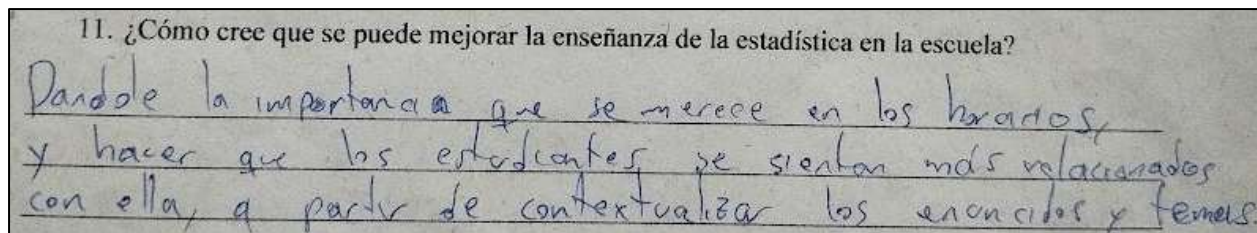 11. ¿Cómo cree que se puede mejorar la enseñanza de la estadística en la escuela?
Dandole la importancia que se merece en los horarios,
y hacer que los estudiantes se sientan más relacionados
con ella, a partir de contextualizar los enunciados y temas